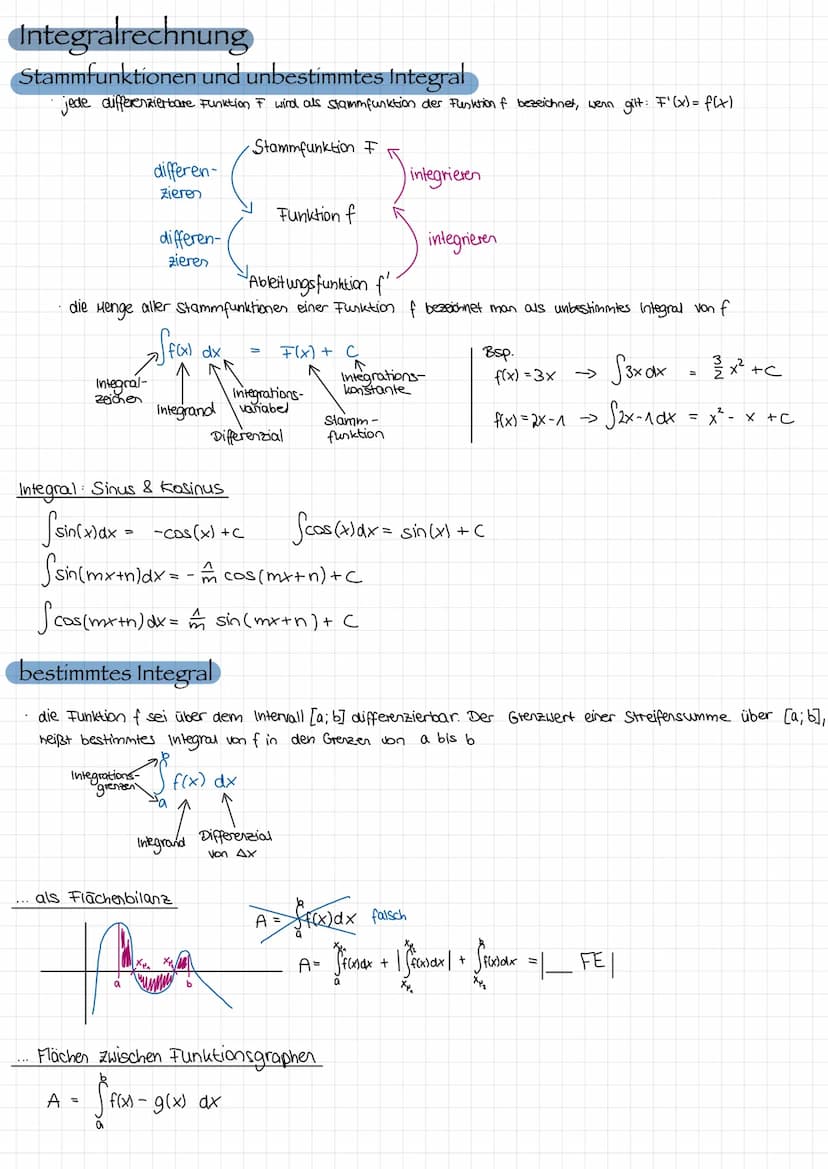 Integralrechnung
Stammfunktionen und unbestimmtes Integral
· jede differenzierbare Funktion F wird als Stammfunktion der Funktion f bezeichnet, wenn gilt: F'(x) = f(x)
Stammfunktion F
differen-
zieren
integrieren
Funktion f
differen-
zieren
integrieren
Ableitungsfunktion f'
· die Menge aller Stammfunktionen einer Funktion f bezeichnet man als unbestimmtes Integral von f
∫f(x) dx = F(x) + C
Integral-
zeichen
Integrand
Integrations-
variabel
Differenzial
Integrations-
konstante
Stamm-
funktion
Bsp.
f(x) = 3x → ∫3x dx = 3/2 x² + C
f(x) = 2x - 1 → ∫2x - 1 dx = x² - x + C
Integral: Sinus & Kosinus
∫sin(x)dx = -cos(x) + C ∫cos(x)dx = sin(x) + C
∫sin(mx+n)dx = - 1/m cos(mx+n) + C
∫cos(mx+n)dx = 1/m sin(mx+n) + C
bestimmtes Integral
· die Funktion f sei über dem Intervall [a;b] differenzierbar. Der Grenzwert einer Streifensumme über [a;b],
heißt bestimmtes Integral von f in den Grenzen von a bis b
Integrations-
grenzen
b
∫ f(x) dx
a
Integrand
Differenzial
von Δx
... als Flächenbilanz
A = ∫ₐᵇ f(x)dx falsch
a x_N₁ x_N₂ b
A = ∫ₐ^x_N₁ f(x)dx + |∫_x_N₁^x_N₂ f(x)dx| + ∫_x_N₂^b f(x)dx = |__ FE|
... Flächen zwischen Funktionsgraphen
A = ∫ₐᵇ f(x) - g(x) dx